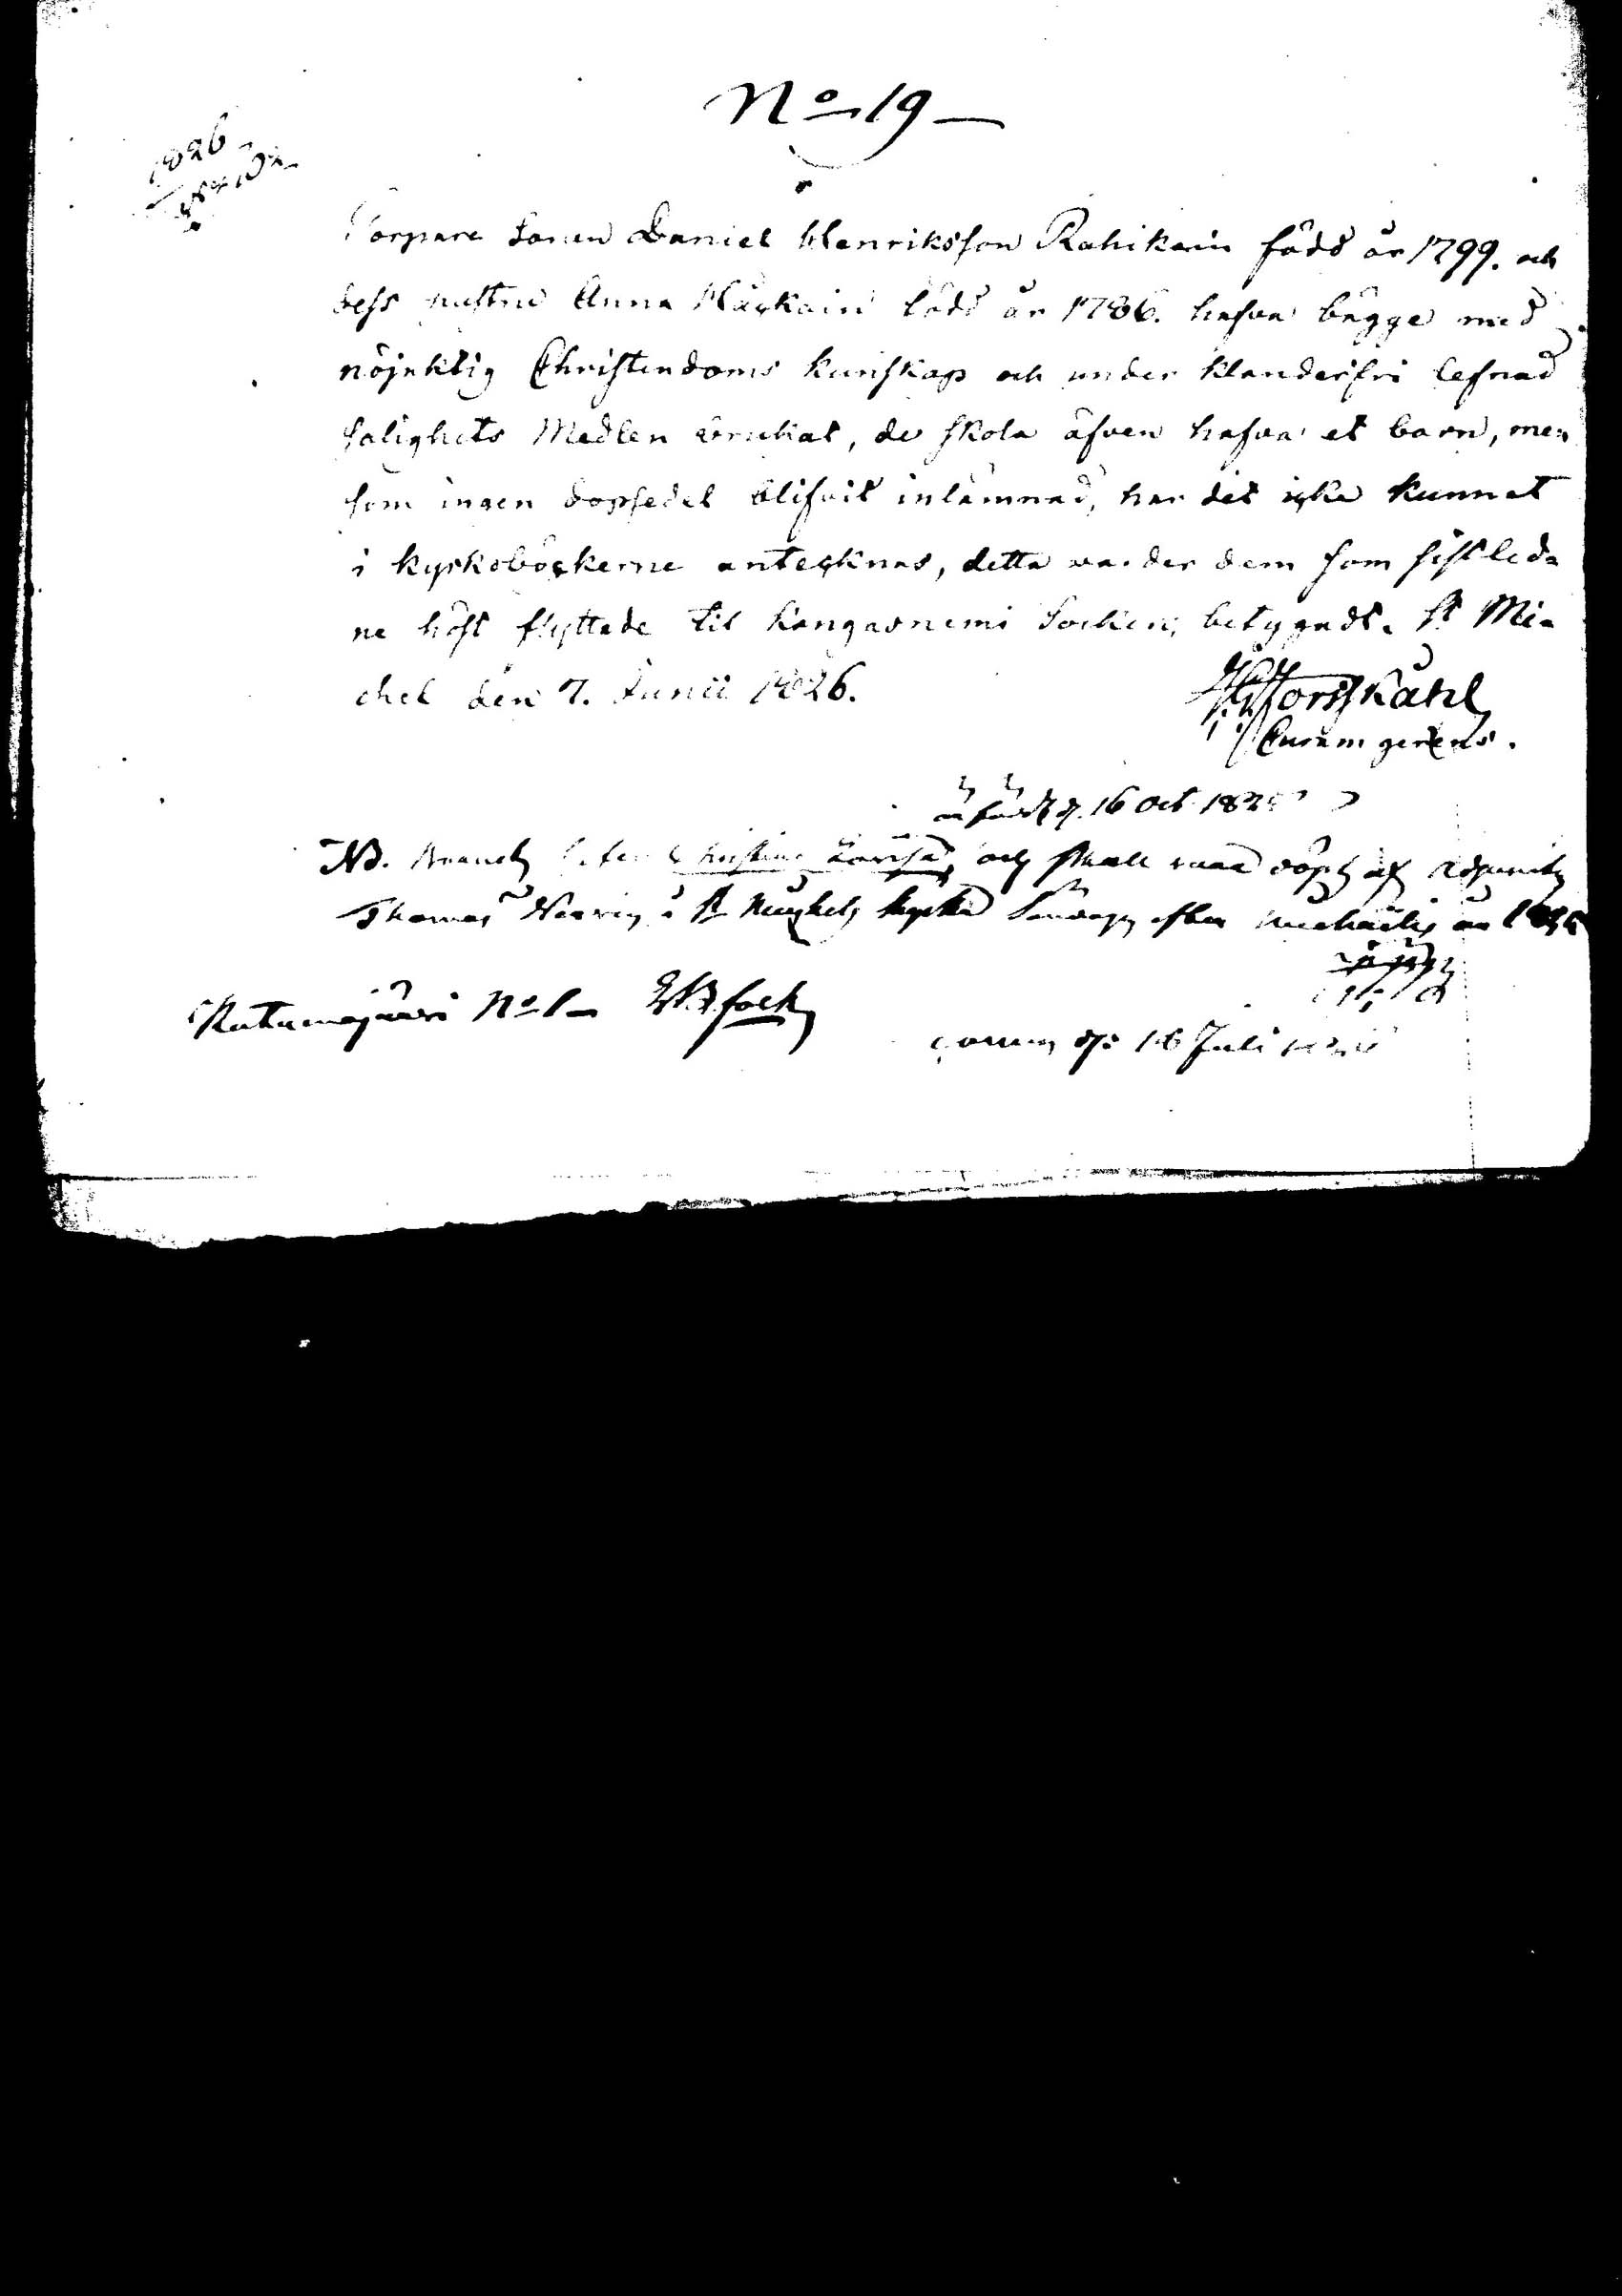 No 19
1826
Torpare Sonen Daniel Henriksson Rahikain född år 1799. och
dess hustru Anna Häckain född år 1786. hafva bägge med
nöjaktig Christendoms kunskap och under klanderfri lefnad
salighets Medlen brukat, de skola äfven hafva et barn, men
som ingen dopsedel blifvit inlämnad, har det icke kunnat
i kyrkoböckerne antecknas, detta varder dem som sistled-
ne höst flyttade til Kangasnemi Socken, betygadt. St Mi-
chel den 7. Junii 1826.
Forsskåhl
Curam gerens.
är född d. 16 Oct 182
NB. och skall vara döpt af
Thomas i St kyrka efter Michaelis år
No 1
16 Juli